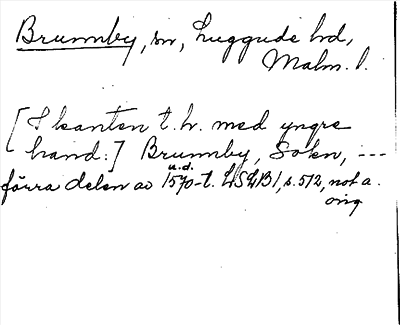 Brunnby, sn, Luggude hd,
Malm. l.
[I kanten t.h. med yngre
hand:] Brunnby, Sokn, ---
u.d.
förra delen av 1570-t. LSLB 1, s. 512, not a.
orig